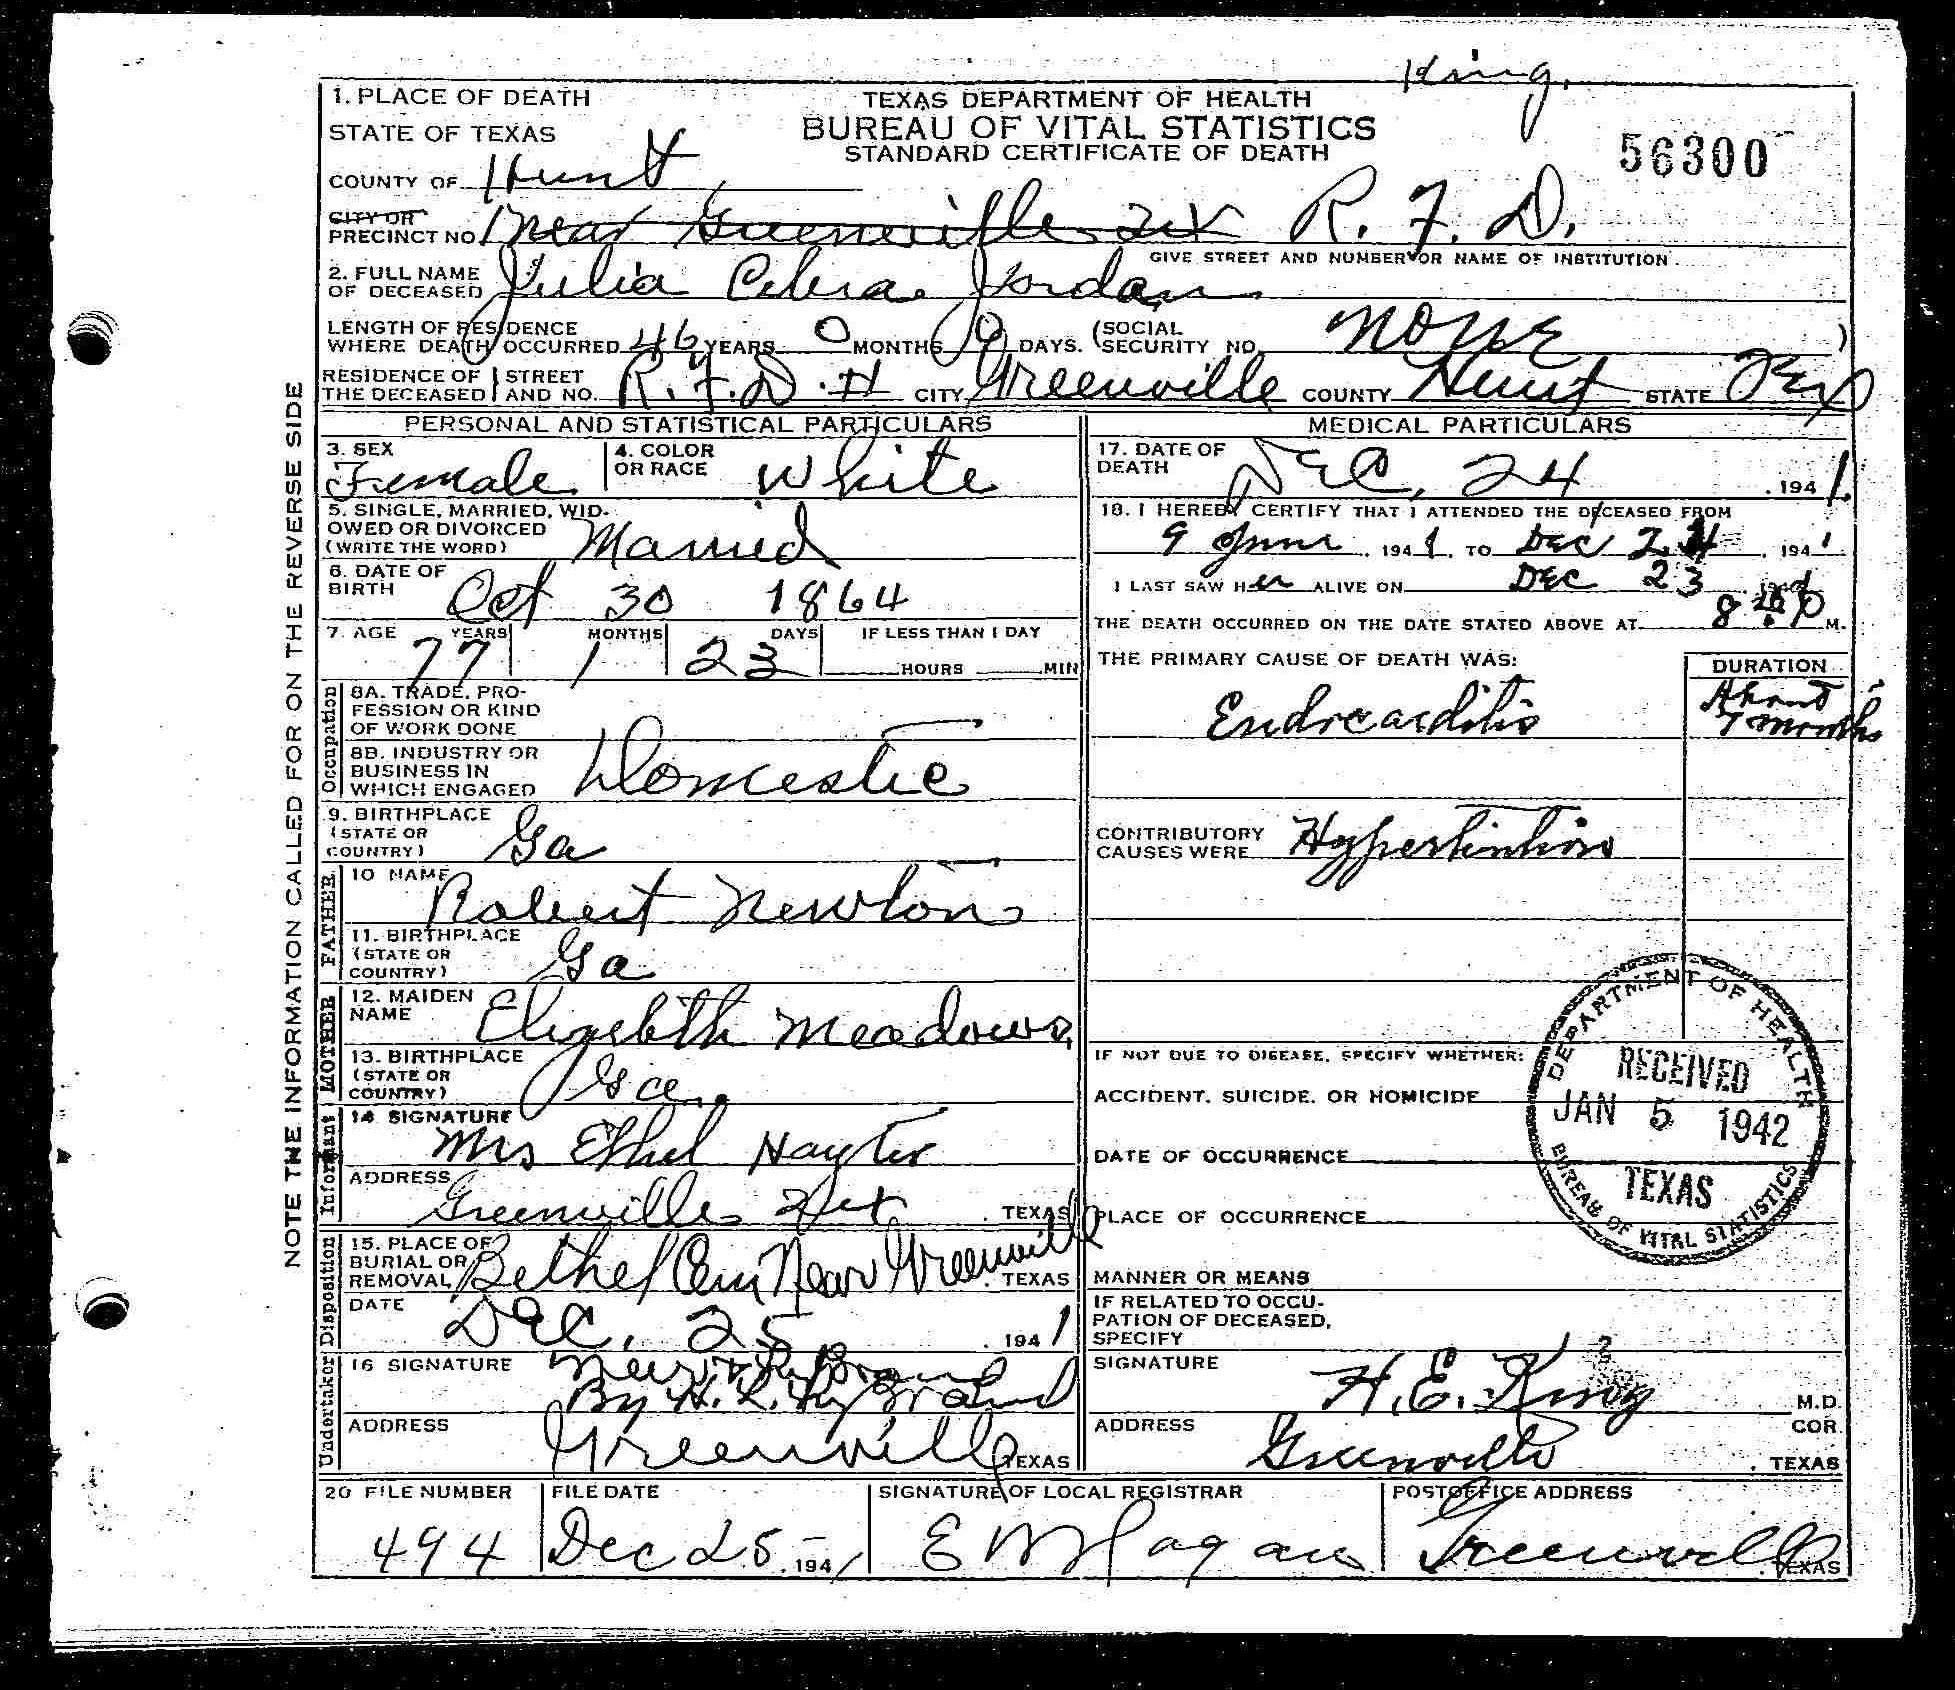 King,
1. PLACE OF DEATH
STATE OF TEXAS
TEXAS DEPARTMENT OF HEALTH
BUREAU OF VITAL STATISTICS
STANDARD CERTIFICATE OF DEATH
56300
COUNTY OF Hunt
CITY OR PRECINCT NO. 1 near Greenville R. F. D.
GIVE STREET AND NUMBER OR NAME OF INSTITUTION
2. FULL NAME OF DECEASED Julia Jordan
LENGTH OF RESIDENCE WHERE DEATH OCCURRED 46 YEARS 0 MONTHS 0 DAYS. (SOCIAL SECURITY NO. None )
RESIDENCE OF THE DECEASED STREET AND NO. R.F.D. CITY Greenville COUNTY Hunt STATE Tex
PERSONAL AND STATISTICAL PARTICULARS
3. SEX Female
4. COLOR OR RACE White
5. SINGLE, MARRIED, WIDOWED OR DIVORCED (WRITE THE WORD) Married
6. DATE OF BIRTH Oct 30 1864
7. AGE YEARS 77 MONTHS 1 DAYS 23 IF LESS THAN 1 DAY HOURS MIN
Occupation
8A. TRADE, PROFESSION OR KIND OF WORK DONE
8B. INDUSTRY OR BUSINESS IN WHICH ENGAGED Domestic
9. BIRTHPLACE (STATE OR COUNTRY) Ga
FATHER
10 NAME Robert Newton
11. BIRTHPLACE (STATE OR COUNTRY) Ga
MOTHER
12. MAIDEN NAME Elizabeth Meadows
13. BIRTHPLACE (STATE OR COUNTRY) Ga.
Informant
14 SIGNATURE Mrs Ethel Hayter
ADDRESS Greenville Tex TEXAS
Disposition
15. PLACE OF BURIAL OR REMOVAL Bethel Cem Near Greenville TEXAS
DATE Dec. 25 1941
Undertaker
16 SIGNATURE
By H. L.
ADDRESS Greenville TEXAS
MEDICAL PARTICULARS
17. DATE OF DEATH Dec. 24 1941.
18. I HEREBY CERTIFY THAT I ATTENDED THE DECEASED FROM
9 June 1941. TO Dec 24 1941
I LAST SAW Her ALIVE ON Dec 23
THE DEATH OCCURRED ON THE DATE STATED ABOVE AT 8 P M.
THE PRIMARY CAUSE OF DEATH WAS:
DURATION
Endocarditis About 7 months
CONTRIBUTORY CAUSES WERE Hypertintion
IF NOT DUE TO DISEASE, SPECIFY WHETHER:
ACCIDENT, SUICIDE, OR HOMICIDE
DATE OF OCCURRENCE
PLACE OF OCCURRENCE
MANNER OR MEANS
IF RELATED TO OCCUPATION OF DECEASED, SPECIFY
SIGNATURE H. E. King M.D.
COR.
ADDRESS Greenville, TEXAS
DEPARTMENT OF HEALTH
RECEIVED
JAN 5 1942
TEXAS
BUREAU OF VITAL STATISTICS
20 FILE NUMBER 494
FILE DATE Dec 25 1941
SIGNATURE OF LOCAL REGISTRAR
POSTOFFICE ADDRESS Greenville TEXAS
NOTE THE INFORMATION CALLED FOR ON THE REVERSE SIDE